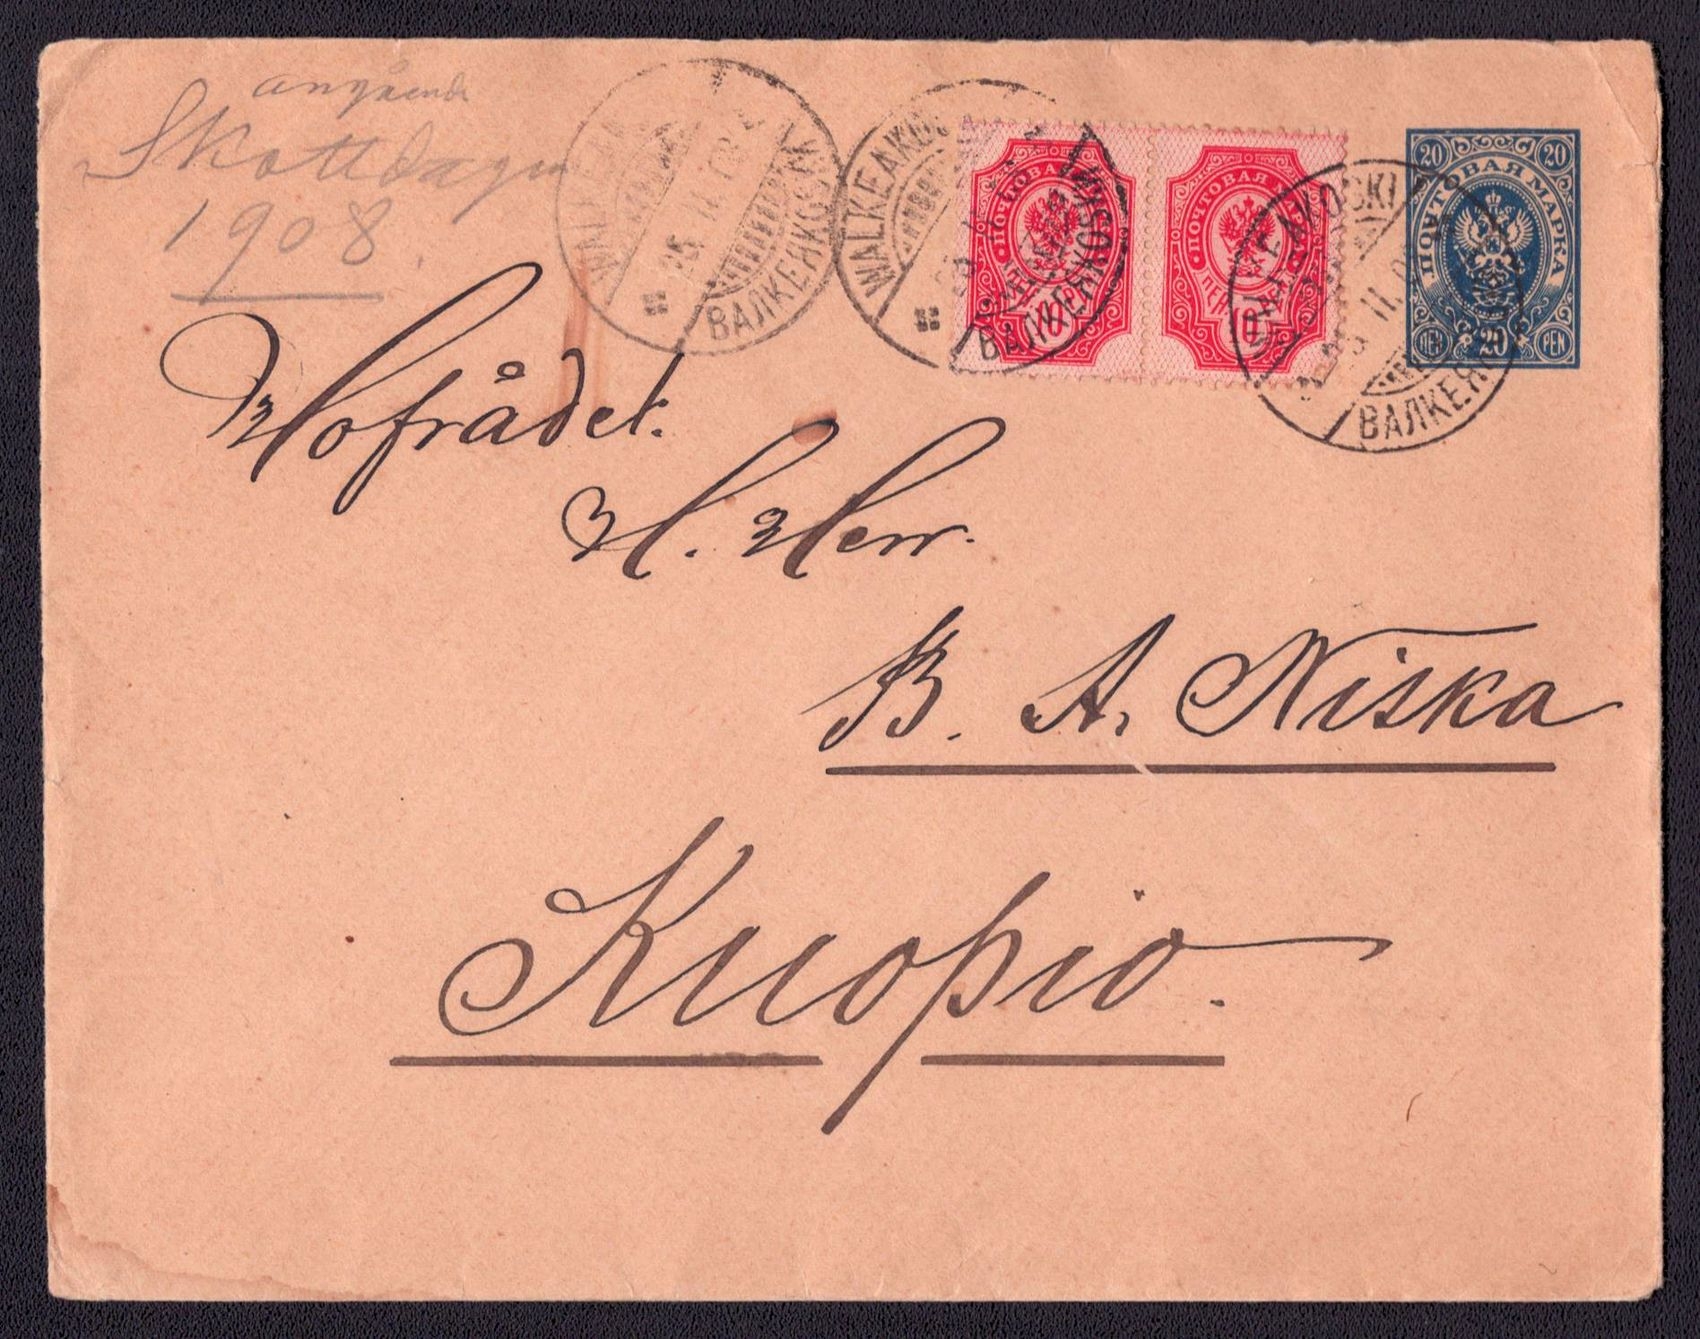 angående
Skottdagen
1908.
WALKEAKOSKI
25. II. 08
ВАЛКЕАКОСКИ
WALKEAKOSKI
ВАЛКЕАКОСКИ
ПОЧТОВАЯ МАРКА
10 ПЕН 10
ПОЧТОВАЯ МАРКА
10 ПЕН 10
WALKEAKOSKI
ВАЛКЕАКОСКИ
20 20
ПОЧТОВАЯ МАРКА
ПЕН 20 PEN
Hofrådet.
H. Herr.
B. A. Niska
Kuopio.